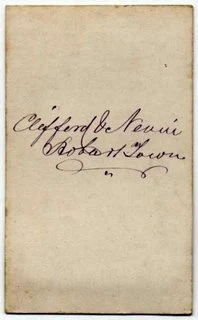 Clifford & Nevin
Robart Town